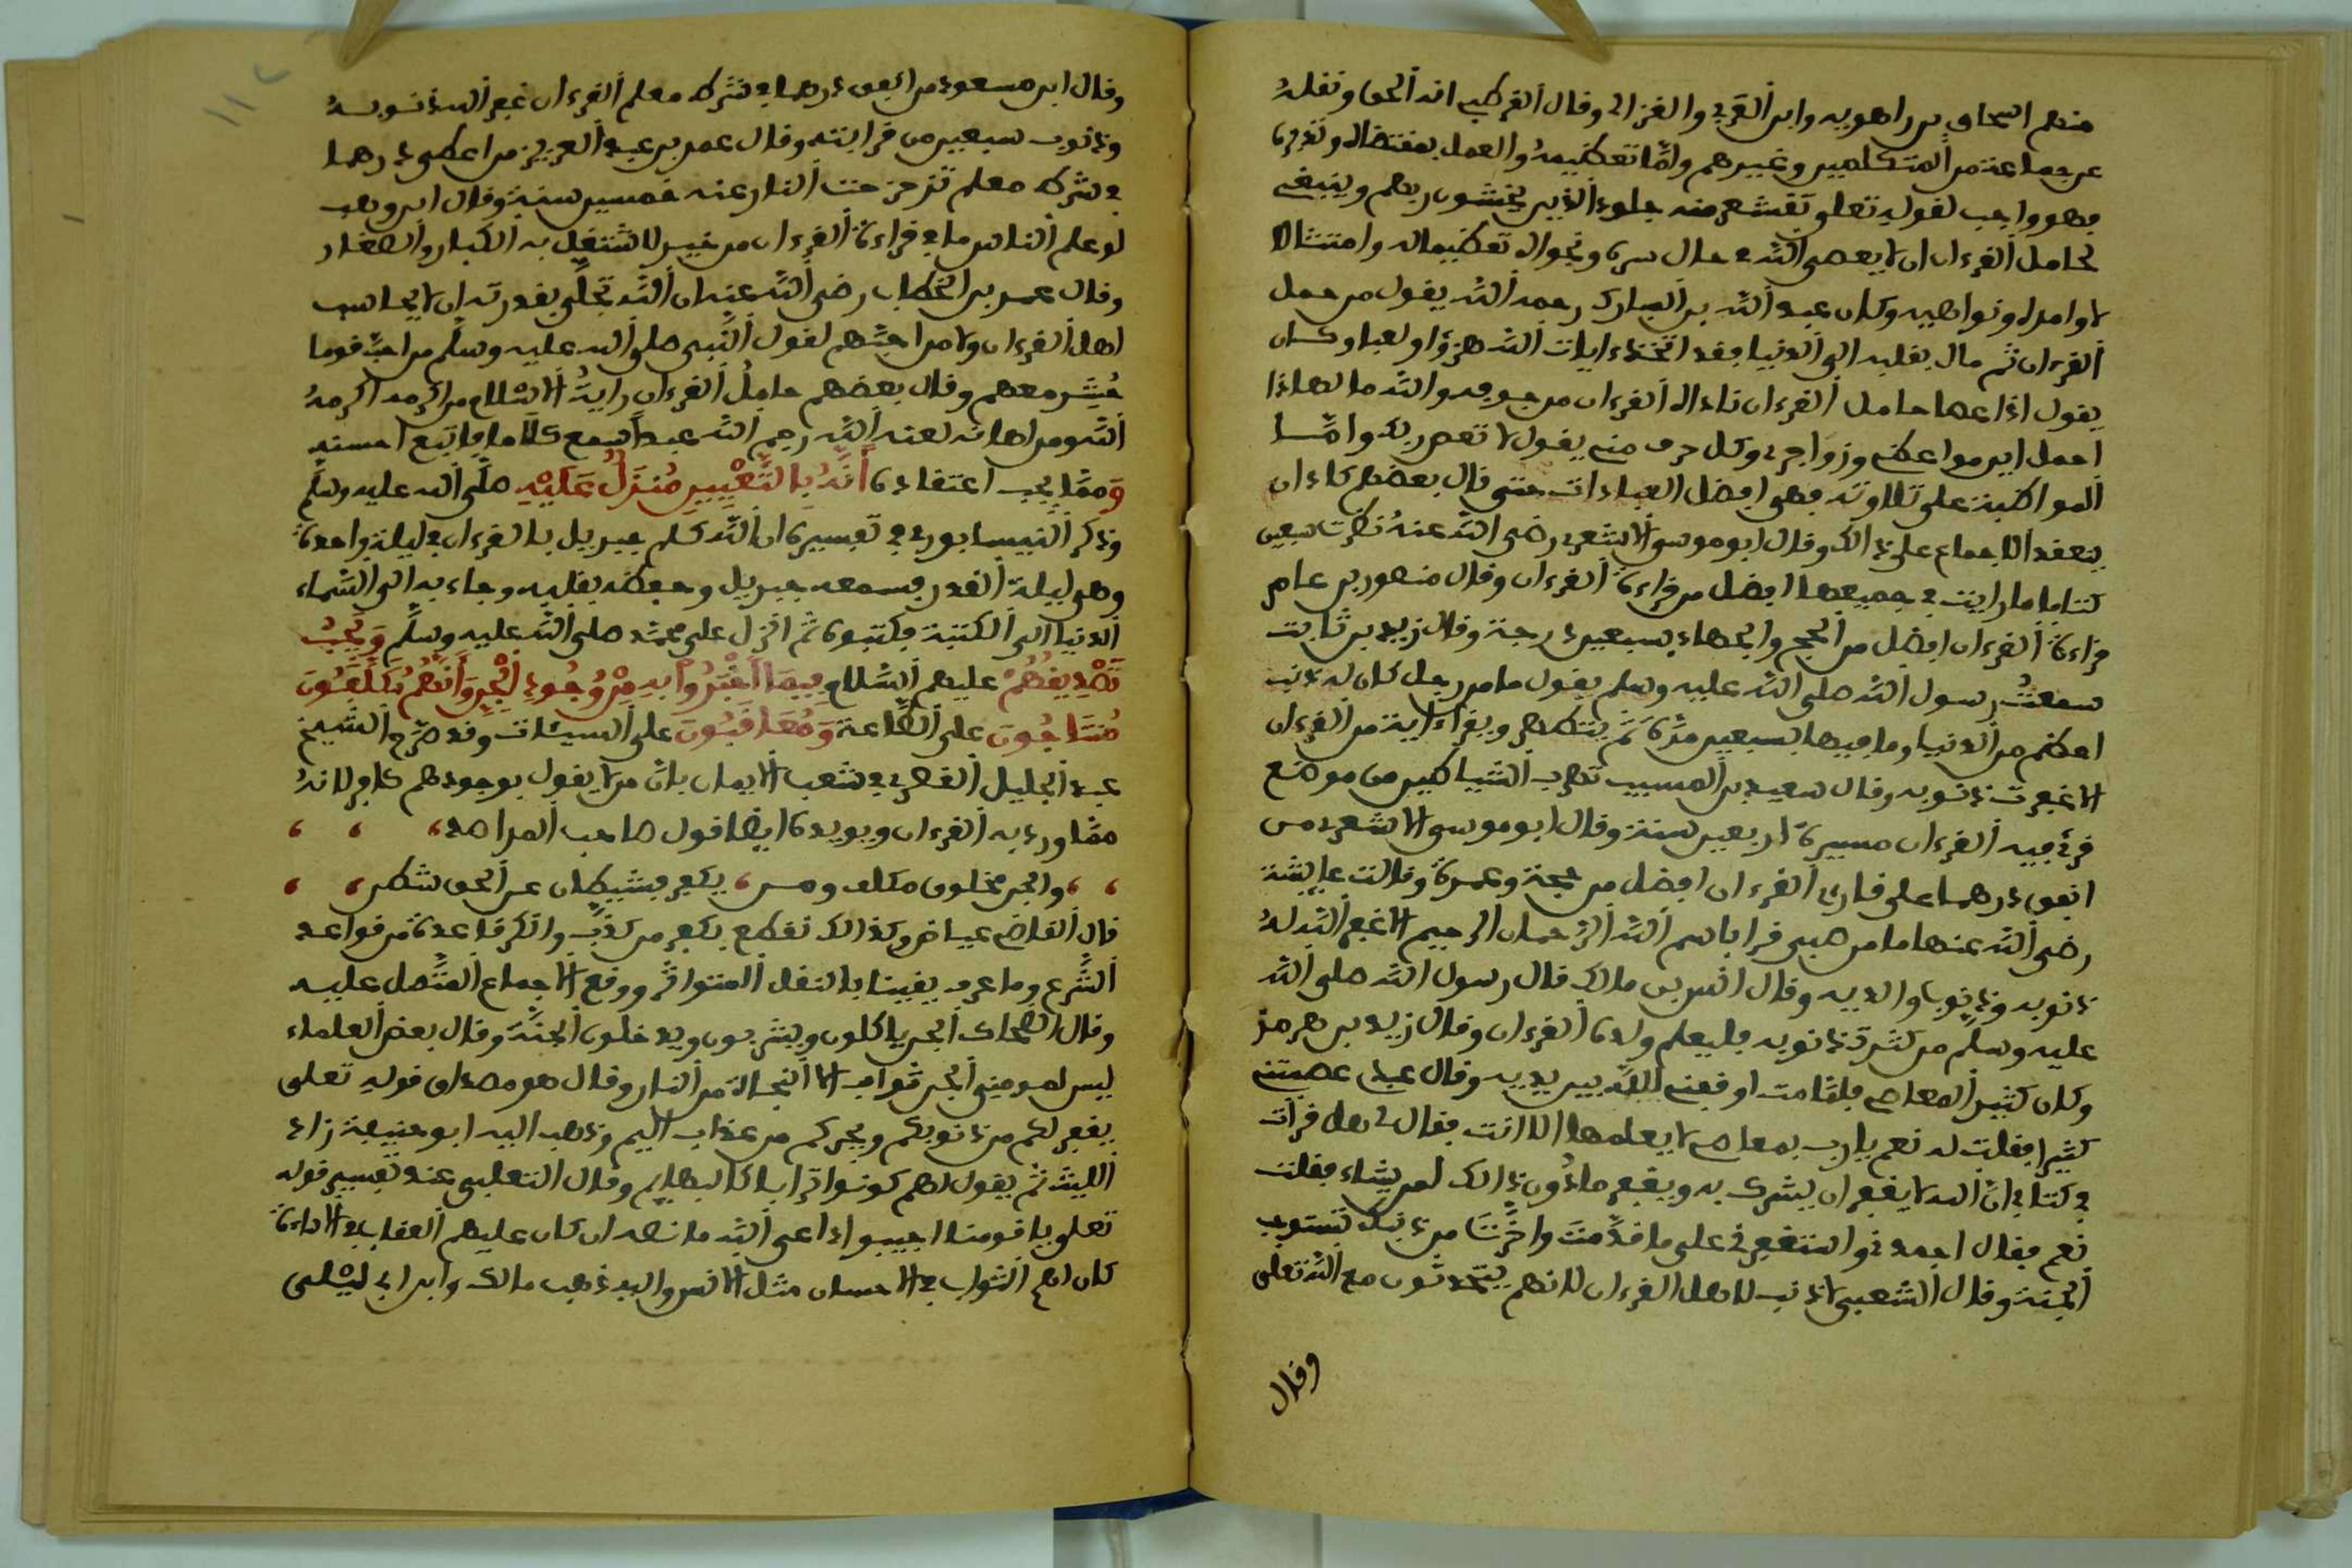 منهم اسحاق بن راهويه وابن العربي والغزالي وقال القرطبي انه الحق ونقله
عن جماعة من المتكلمين وغيرهم وامّا تعظيمهُ والعمل بمقتضاه وتدبره
فهو واجب لقوله تعلى تقشعر منه جلود الذين يخشون ربهم وينبغي
لحامل القرءان ان لا يعصي الله في حال سره ونجواه تعظيما له وامتثالا
لاوامره ونواهيه وكان عبد الله بن المبارك رحمه الله يقول من حمل
القرءان ثم مال بقلبه الى الدنيا فقد اتخذ ءايات الله هزؤا ولعبا وكان
يقول اذا عصا حامل القرءان ناداه القرءان من جوفه والله ما لهاذا
احمل اين مواعظي وزواجري وكل حرف مني يقول لا تعص ربك وامّا
المواظبة على تلاوته فهي افضل العبادات حتى قال بعضهم كاد ان
ينعقد الاجماع على ذالك وقال ابو موسى الاشعري رضي الله عنه نظرت سبعين
كتابا ما رايت في جميعها افضل من قراءة القرءان وقال منصور بن عامر
قراءة القرءان افضل من الحج والجهاد بسبعين درجة وقال زيد بن ثابت
سمعتُ رسول الله صلى الله عليه وسلم يقول ما من رجل كان له ذنب
اعظم من الدنيا وما فيها بسبعين مرّة ثم يتطهر ويقرأ ءاية من القرءان
الا غفرت ذنوبه وقال سعيد بن المسيب تهرب الشياطين من موضع
قرئ فيه القرءان مسيرة اربعين سنة وقال ابو موسى الاشعري من
انفق درهما على قارئ القرءان افضل من حجة وعمرة وقالت عايشة
رضي الله عنها ما من صبي قرا باسم الله الرحمان الرحيم الا غفر الله له
ذنوبه وذنوب والديه وقال انس بن مالك قال رسول الله صلى الله
عليه وسلم من كثرت ذنوبه فليعلم ولده القرءان وقال زيد بن هرمز
وكان كثير المعاصي فلمّا مت اوقفني الله بين يديه وقال عبدي عصيتني
كثيرا فقلت له نعم يارب بمعاصي لا يعلمها الا انت فقال لي هل قرأت
في كتابي انّ الله لا يغفر ان يشرك به ويغفر ما دون ذالك لمن يشاء فقلت
نعم فقال احمدني واستغفرني على ما قدّمت واخّرت من ذنبك تستوجب
الجنة وقال الشعبي لا ذنب لاهل القرءان لانهم يتحدثون مع الله تعلى
وقال
وقال ابن مسعود من انفق درهما في شركه معلم القرءان غفر الله ذنوبه
وذنوب سبعين من قرابته وقال عمر بن عبد العزيز من اعطى درهما
في شركه معلم تزحزحت النار عنه خمسين سنة وقال ابن وهب
لو علم الناس ما في قراءة القرءان من خير لاشتغل به الكبار والصغار
وقال عمر بن الخطاب رضي الله عنه ان الله تجلّى بقدرته ان لا يحاسب
اهل القرءان ولا من احبّهم لقول النّبي صلى الله عليه وسلّم من احبّ قوما
حُشِر معهم وقال بعضهم حاملُ القرءان رايةُ الاسلام من اكرمه اكرمهُ
الله ومن اهانه لعنه الله رحم الله عبدا سمع كلاما فاتبع احسنه
وَممّا يجب اعتقاده أَنَّهُ بِالتَّعْيِينِ مُنزَلٌ عَلَيْهِ صلّى الله عليه وسلّم
وذكر النيسابوري في تفسيره ان الله كلم جبريل بالقرءان في ليلة واحدة
وهي ليلة القدر فسمعه جبريل وحفظه بقلبه وجاء به الى السّماء
الدنيا الى الكتبة فكتبوه ثم انزل على محمّد صلى الله عليه وسلّم وَيَجِبُ
تَصْدِيقُهُمْ عليهم السّلام فِيمَا أَخْبَرُواْ بِهِ مِنْ وُجُودِ الْجِنِّ وَأَنَّهُمْ مُكَلَّفُونَ
مُثَابُونَ على الطّاعة وَمُعَاقَبُونَ على السيئات وقد صرّح الشيخ
عبد الجليل القصري في شعب الايمان بان من لا يقول بوجودهم كافر لانهُ
ممّا ورد به القرءان ويويده ايضا قول صاحب المراصد،
والجن مخلوق مكلف ومن، يكفر فشيطان عن الحق شطن،
قال القاضي عياض وكذالك نقطع بكفر من كذّب وانكر قاعدة من قواعد
الشّرع وما عرف يقينا بالنقل المتواتر ووقع الاجماع المتّصل عليه
وقال الضحاك الجن ياكلون ويشربون ويدخلون الجنّة وقال بعض العلماء
ليس لمومني الجن ثواب الا النجاة من النار وقال هو مصداق قوله تعلى
يغفر لكم من ذنوبكم ويجركم من عذاب اليم وذهب اليه ابو حنيفة زاد
الليث ثم يقول لهم كونوا ترابا كالبهايم وقال الثعلبي عند تفسير قوله
تعلى يا قومنا اجيبوا داعي الله ما نصه ان كان عليهم العقاب في الاساءة
كان لهم الثواب في الاحسان مثل الانس واليه ذهب مالك وابن ابي ليلى